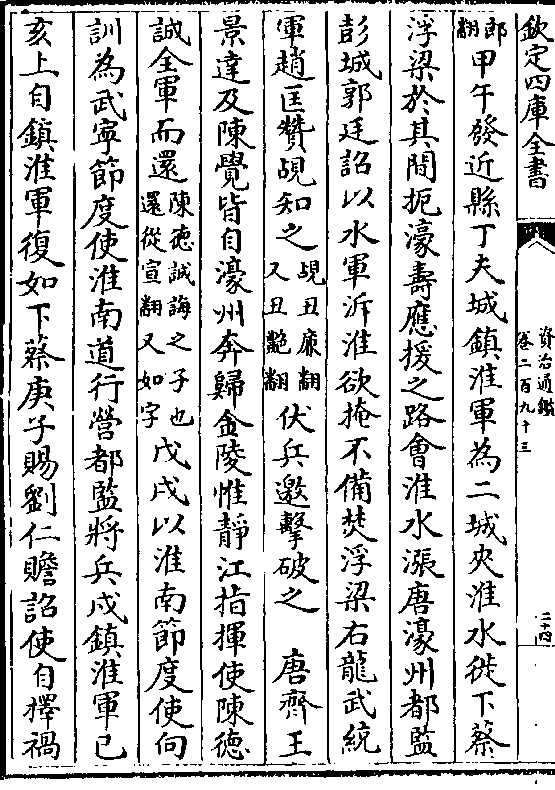 欽定四庫全書
資治通鑑
卷二百九十三
二十四
郎翻甲午發近縣丁夫城鎮淮軍為二城夾淮水徙下蔡
浮梁於其間扼濠壽應援之路會淮水漲唐濠州都監
彭城郭廷詔以水軍泝淮欲掩不備焚浮梁右龍武統
軍趙匡贊覘知之覘丑廉翻又丑豔翻伏兵邀擊破之　唐齊王
景達及陳覺皆自濠州奔歸金陵惟靜江指揮使陳德
誠全軍而還陳德誠誨之子也還從宣翻又如字戊戌以淮南節度使向
訓為武寧節度使淮南道行營都監將兵戍鎮淮軍己
亥上自鎮淮軍復如下蔡庚子賜劉仁贍詔使自擇禍